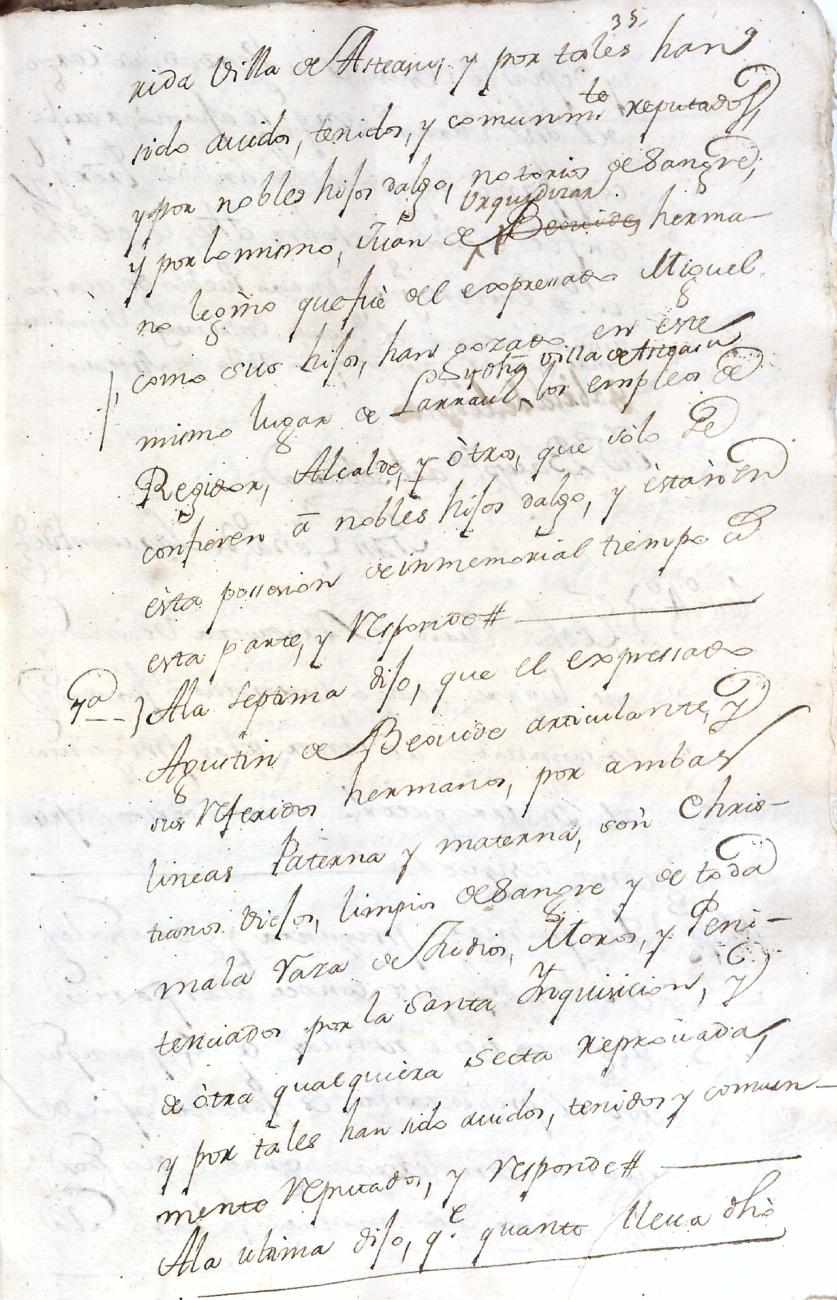 35,
rida Villa de Asteasu, y por tales han
sido auidos, tenidos, y comunm.te reputados,
y por nobles hijos dalgo, notorios de Sangre,
Urquidizar
y por lo mismo, Juan de Beouide, herma-
no legmo que fuè del expressado Miguel
como sus hijos, han gozado en este
y dha villa de Asteasu
mismo lugar de Larraul, los empleos de
Regidor, Alcalde, y òtros, que sòlo se
confieren â nobles hijos dalgo, y èstàn en
èsta possesion de inmemorial tiempo â
esta parte, y responde#
7.a } Ala septima dijo, que el expressado
Agustin de Beouide articulante, y
sus referidos hermanos, por ambas
lineas Paterna y materna, son Chris-
tianos viejos, limpios de Sangre y de toda
mala raza de Judios, Moros, y Peni-
tenciados por la Santa Inquisicion, y
de òtra qualquiera secta reprouada,
y por tàles han sido auidos, tenidos y comun-
mente reputados, y responde#
Ala ultima dijo, q.e quanto lleua dho